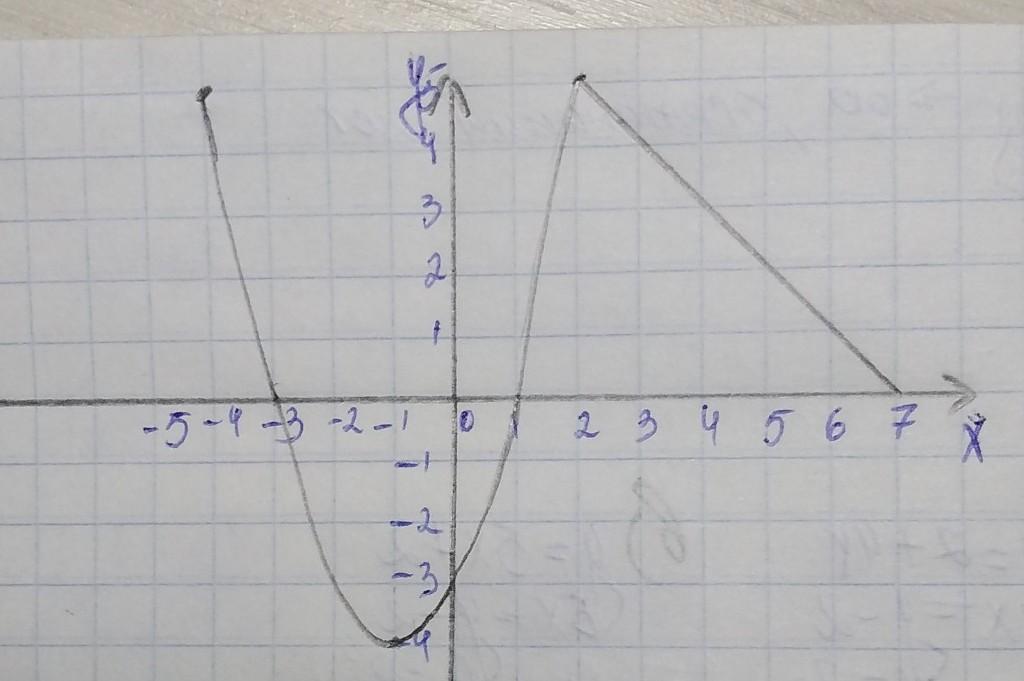 y
5
4
3
2
1
-5 -4 -3 -2 -1 0 1 2 3 4 5 6 7 X
-1
-2
-3
-4